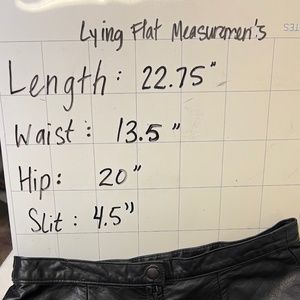 Lying Flat Measuremen's
Length: 22.75"
Waist: 13.5"
Hip: 20"
Slit: 4.5"